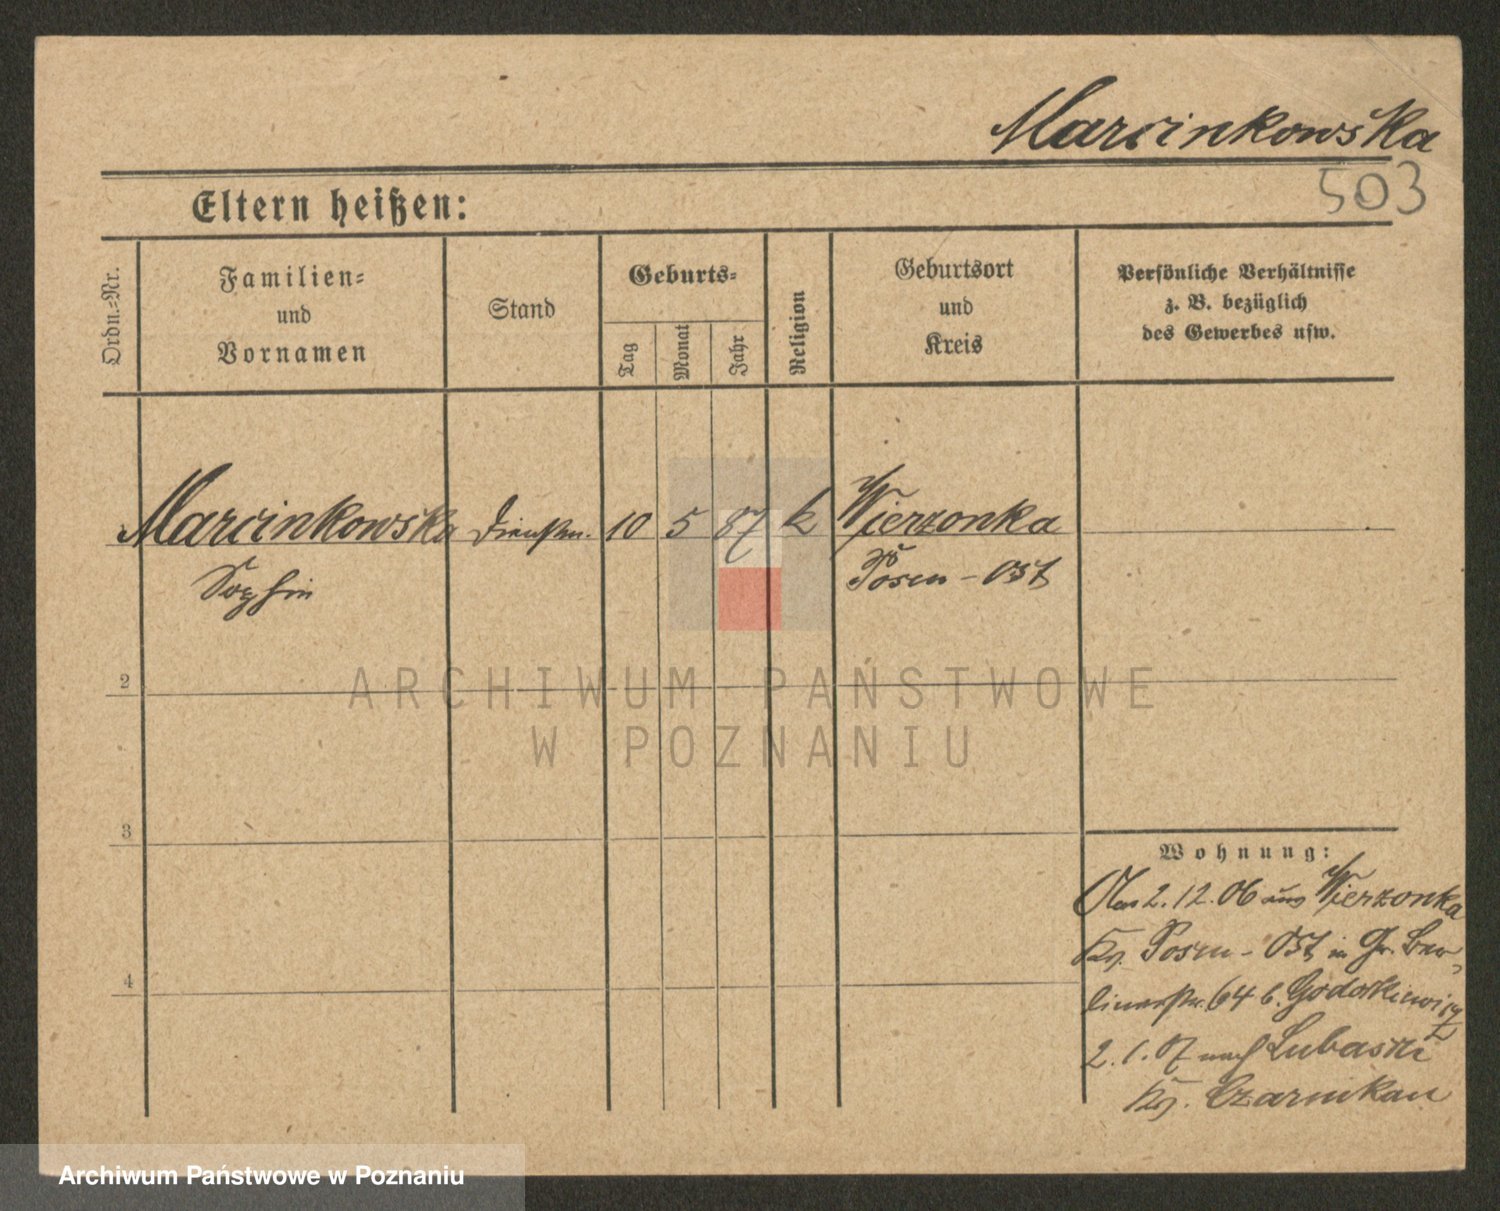 Marcinkowska
503
Eltern heißen:
Ordn.-Nr.
Familien-
und
Vornamen
Stand
Geburts-
Tag
Monat
Jahr
Religion
Geburtsort
und
Kreis
Persönliche Verhältnisse
z. B. bezüglich
des Gewerbes usw.
Marcinkowska Dienstm. 10 5 87 k Wierzonka
Sophie Posen-Ost
2
ARCHIWUM PAŃSTWOWE
W POZNANIU
3
Wohnung:
2.12.06 aus Wierzonka
Kr. Posen-Ost in Gr. Ber-
linerstr. 64 b.
2.1.07 nach Lubasch
Kr. Czarnikau
4
Archiwum Państwowe w Poznaniu